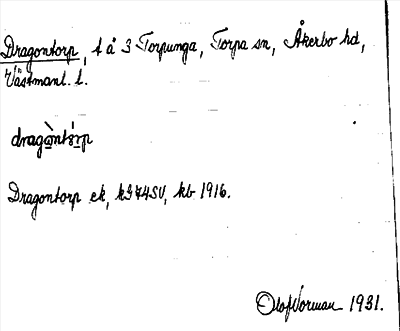 Dragontorp, t å 3 Torpunga, Torpa sn, Åkerbo hd,
Västmanl. l.
dragòntórp
Dragontorp ek, k374SV, kb 1916.
Olof Norman 1931.